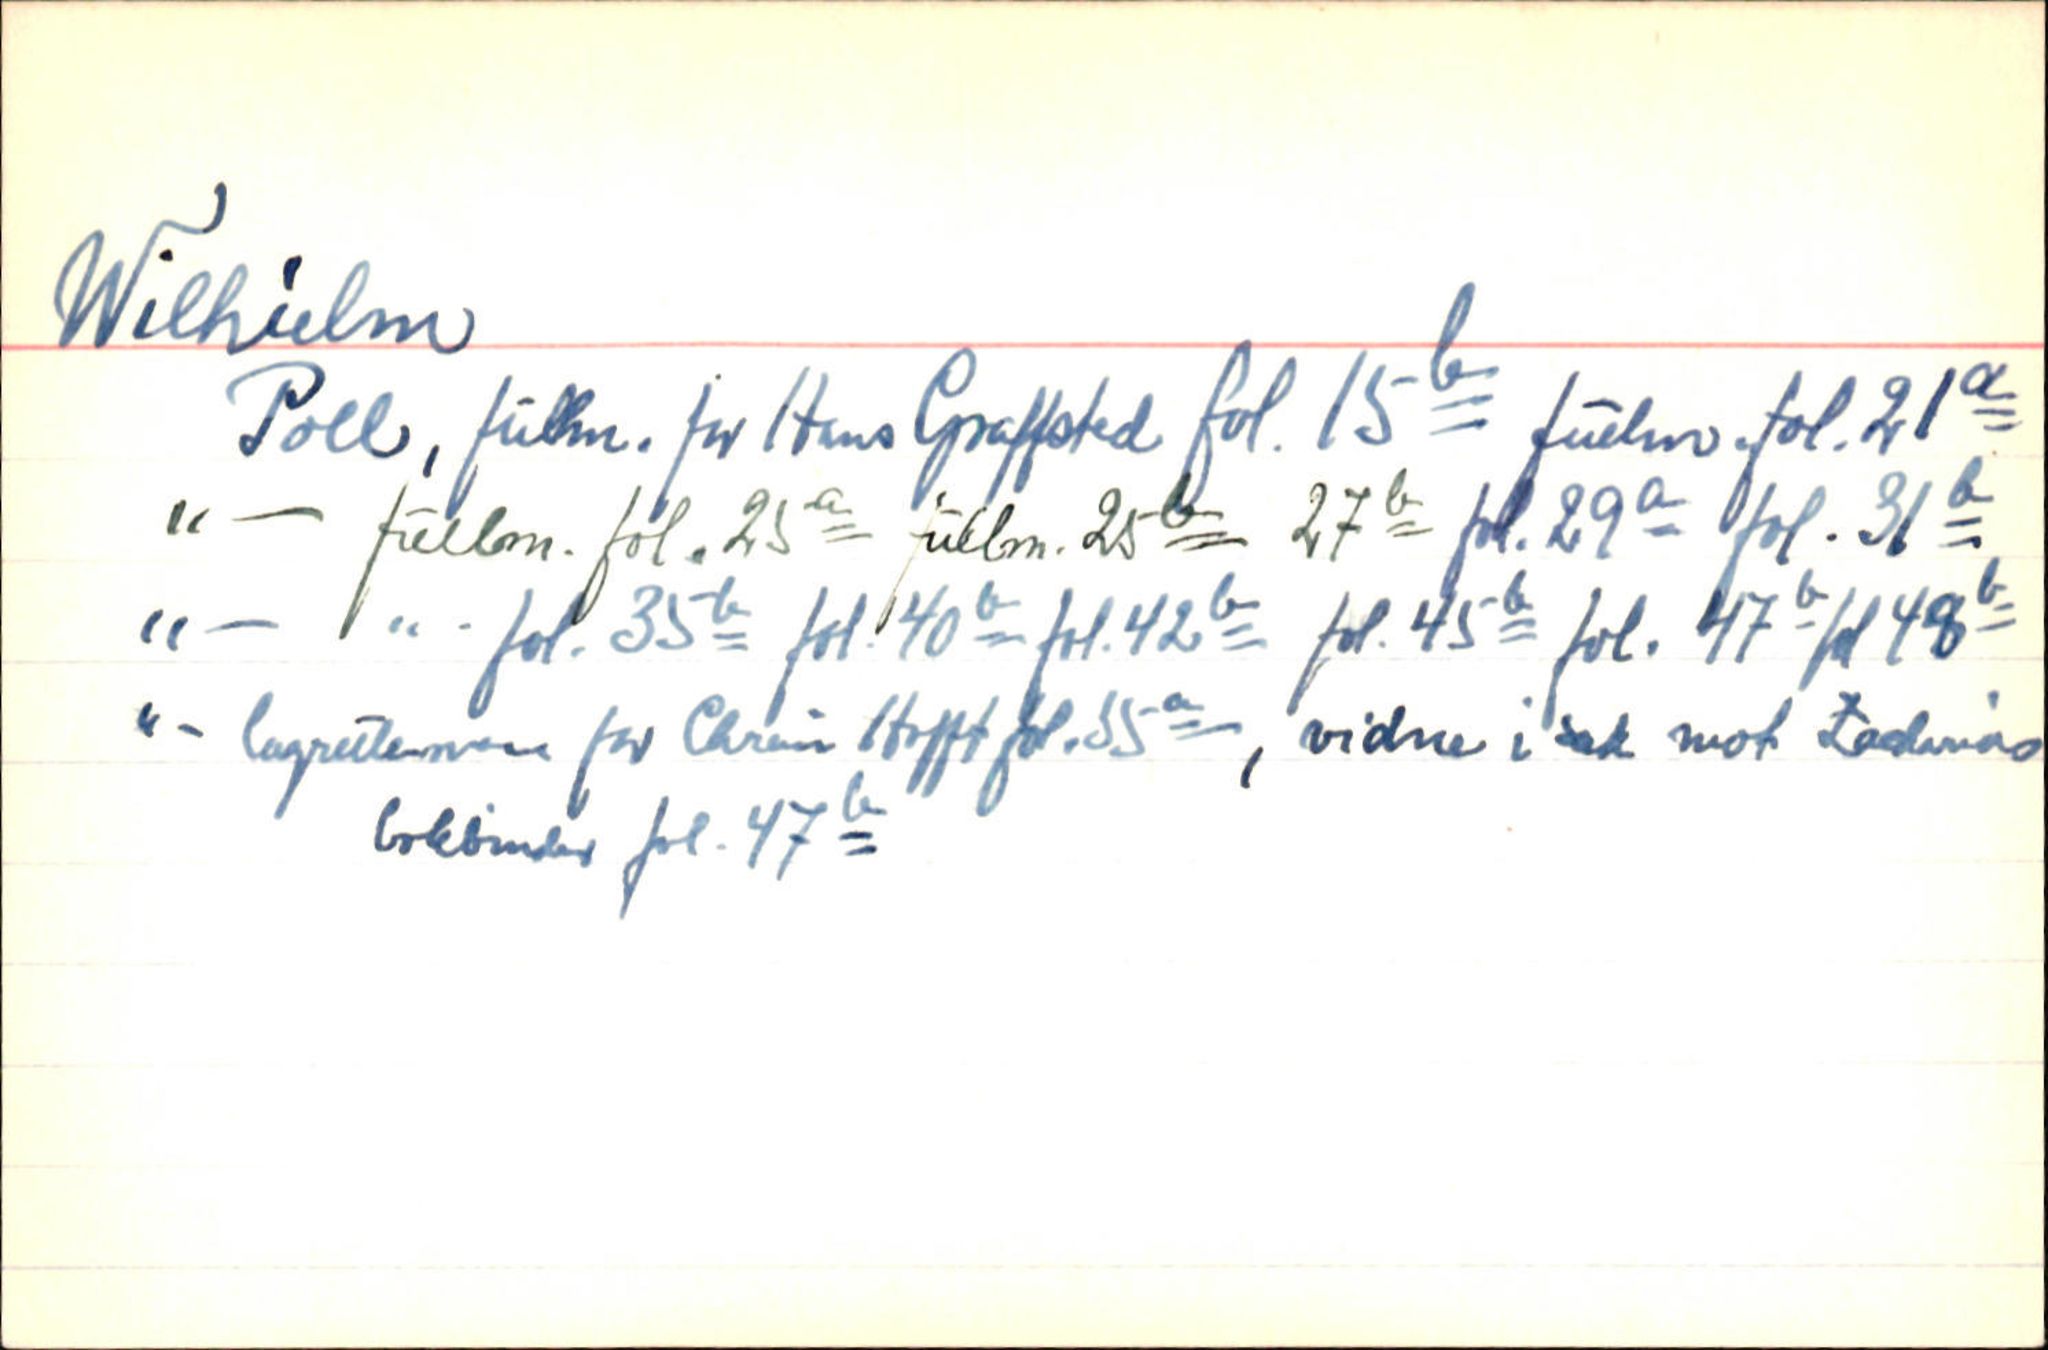 Wilhielm
Poll, fullm. for Hans Graffsted fol. 15b fullm. fol. 21a
"— fullm. fol. 25a fullm. 25b 27b fol. 29a fol. 31b
"— " - fol. 35b fol. 40b fol. 42b fol. 45b fol. 47b fol 48b
"- lagrettemann for Hofft fol. 55a, vidne i sak mot Zacharias
bokbinder fol. 47b